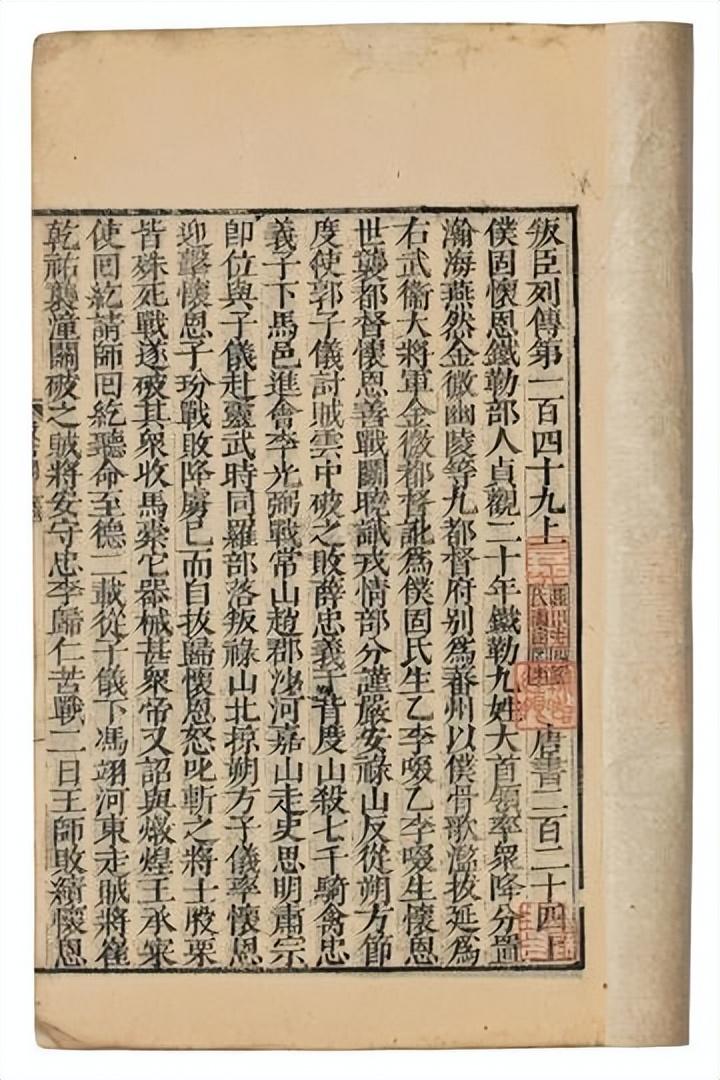 叛臣列傳第一百四十九上 唐書二百二十四上
僕固懷恩鐵勒部人貞觀二十年鐵勒九姓大首領率衆降分置
瀚海燕然金微幽陵等九都督府别爲蕃州以僕骨歌濫拔延爲
右武衞大將軍金微都督訛爲僕固氏生乙李啜乙李啜生懷恩
世襲都督懷恩善戰鬬曉識戎情部分謹嚴安祿山反從朔方節
度使郭子儀討賊雲中破之敗薛忠義于背度山殺七千騎禽忠
義子下馬邑進會李光弼戰常山趙郡沙河嘉山走史思明肅宗
卽位與子儀赴靈武時同羅部落叛祿山北掠朔方子儀率懷恩
迎擊懷恩子玢戰敗降虜已而自拔歸懷恩怒叱斬之將士股栗
皆殊死戰遂破其衆收馬橐它器械甚衆帝又詔與燉煌王承寀
使回紇請師回紇聽命至德二載從子儀下馮翊河東走賊將崔
乾祐襲潼關破之賊將安守忠李歸仁苦戰二日王師敗績懷恩